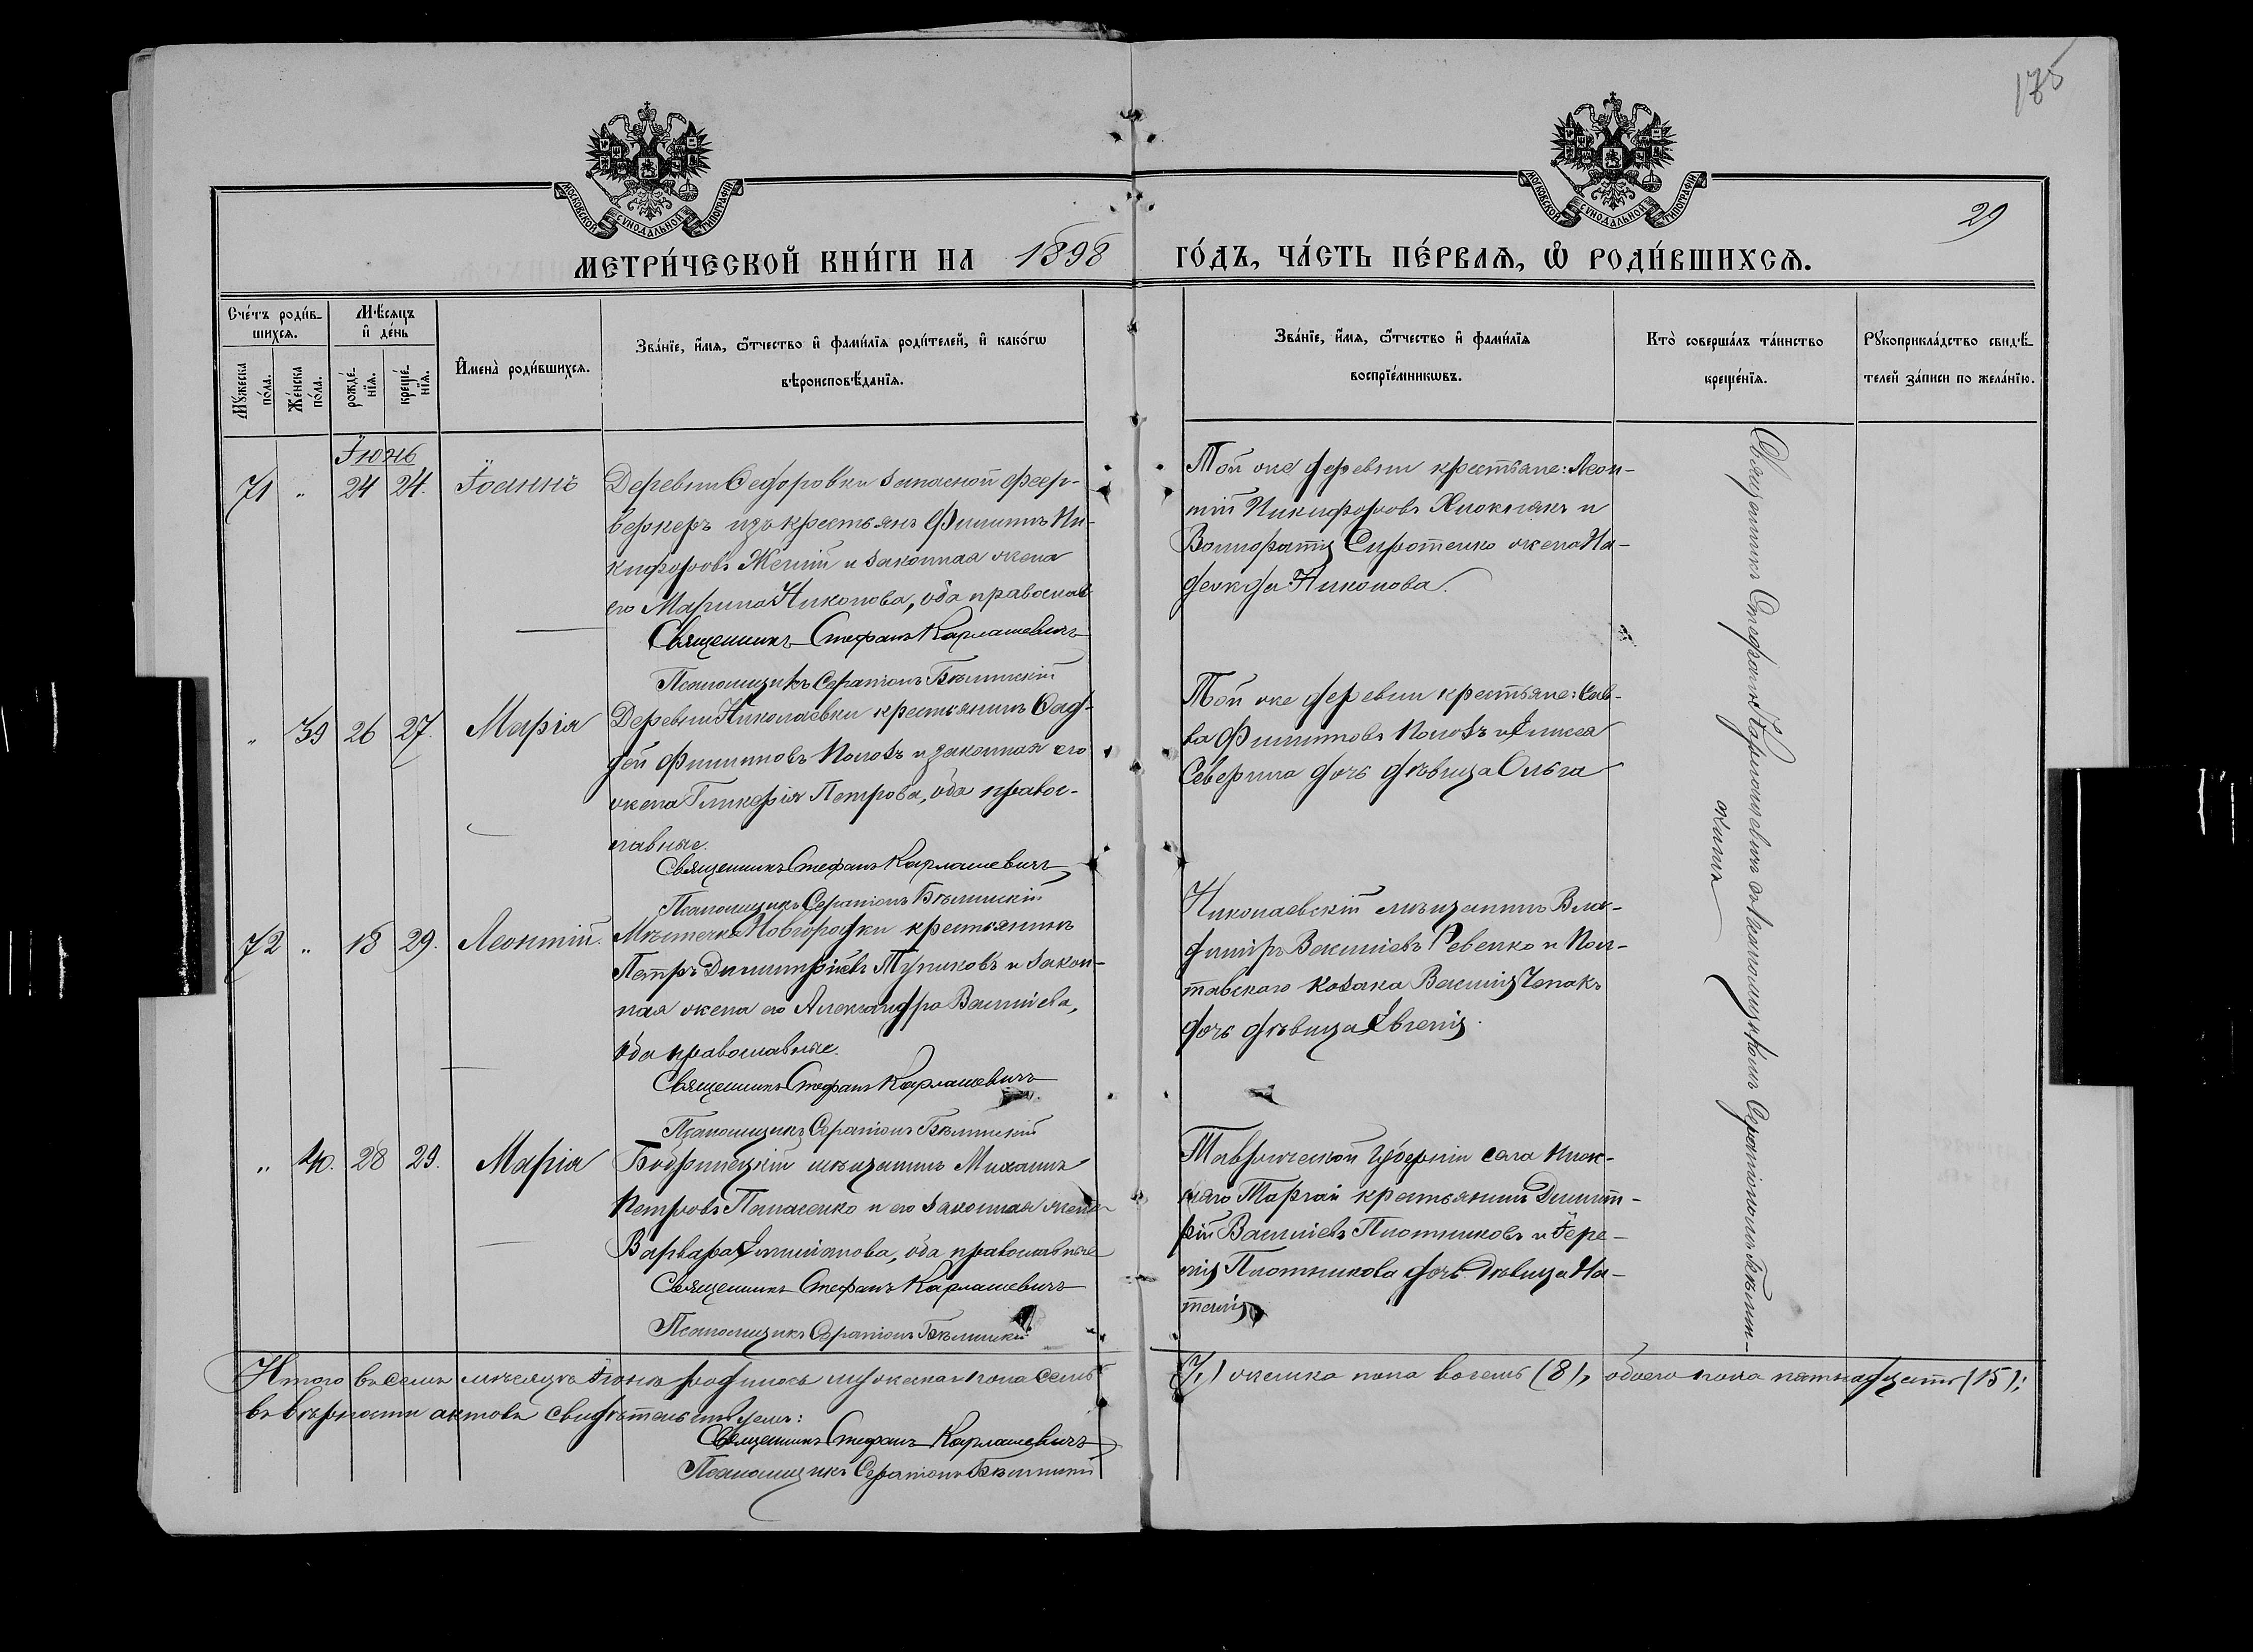 175
29
МОСКОВСКОЙ СѴНОДАЛЬНОЙ ТИПОГРАФІИ
МОСКОВСКОЙ СѴНОДАЛЬНОЙ ТИПОГРАФІИ
МЕТРИ́ЧЕСКОЙ КНИ́ГИ НА 1898 ГО́ДЪ, ЧА́СТЬ ПЕ́РВАѦ, Ѡ РОДИ́ВШИХСѦ.
Счéтъ роди́в-
шихсѧ.
Мѣ́сѧцъ
и҆ де́нь
Мꙋ́жеска
по́ла.
Же́нска
по́ла.
рожде́-
нїѧ.
креще́-
нїѧ.
И҆мена̀ роди́вшихсѧ.
Зва́нїе, и҆́мѧ, ѻ҆́тчество и҆ фами́лїѧ роди́телей, и҆ како́гѡ
вѣроисповѣ́данїѧ.
Зва́нїе, и҆́мѧ, ѻ҆́тчество и҆ фами́лїѧ
воспрїе́мникѡвъ.
Кто̀ соверша́лъ та́инство
креще́нїѧ.
Рꙋкоприкла́дство свидѣ́-
телей за́писи по жела́нїю.
Іюнь
71 " 24 24. Іоаннъ
Деревни Федоровки запасной феер-
веркеръ изъ крестьянъ Филиппъ Ни-
кифоровъ и законная жена
его Марина Никонова, оба православ
Священникъ Стефанъ Карлашевичъ
Псаломщикъ Серапіонъ Бѣлинскій
Той же деревни крестьяне: Леон-
тій Никифоровъ и
Сиротенко жена На-
дежда Никонова.
" 39 26 27. Марія
Деревни Николаевки крестьянинъ Фад-
дей Филипповъ Полозъ и законная его
жена Гликерія Петрова, оба правос-
лавные.
Священникъ Стефанъ Карлашевичъ
Псаломщикъ Серапіонъ Бѣлинскій
Той же деревни крестьяне: Сав-
ва Филипповъ Полозъ и
Северина дочь дѣвица Ольга
72 " 18 29. Леонтій.
Мѣстечка Новгородки крестьянинъ
Петръ Димитріевъ Тупиковъ и закон-
ная жена его Александра Васильева,
оба православные.
Священникъ Стефанъ Карлашевичъ
Псаломщикъ Серапіонъ Бѣлинскій
Николаевскій мѣщанинъ Вла-
диміръ Василіевъ Ревенко и Пол-
тавскаго козака Василія Чепакъ
дочь дѣвица Евгенія.
" 40. 28 29. Марія
Бобринецкій мѣщанинъ Михаилъ
Петровъ Панасенко и его законная жена
Варвара Емиліанова, оба православные
Священникъ Стефанъ Карлашевичъ
Псаломщикъ Серапіонъ Бѣлинскій
Таврической губерніи села Ниж-
няго Таргай крестьянинъ Димит-
рій Василіевъ Плотниковъ и Іере-
мія Плотникова дочь дѣвица На-
талія
Священникъ Стефанъ Карлашевичъ съ псаломщикомъ Серапіономъ Бѣлин-
скимъ
Итого въ семъ мѣсяцѣ Іюнѣ родилось мужеска пола семь (7,) женска пола восемь (8), обоего пола пятнадцать (15);
въ вѣрности актовъ свидѣтельствуемъ:
Священникъ Стефанъ Карлашевичъ
Псаломщикъ Серапіонъ Бѣлинскій